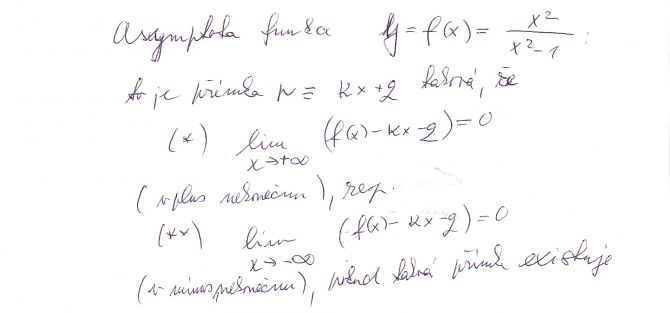 Asymptota funkce y = f(x) = x²/(x²-1) :
to je přímka p ≡ kx+q taková, že
(*) lim x→+∞ (f(x)-kx-q)=0
(v plus nekonečnu), resp.
(**) lim x→-∞ (f(x)-kx-q)=0
(v minus nekonečnu), pokud taková přímka existuje